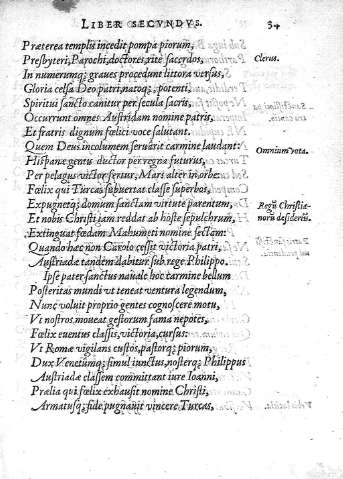 LIBER SECVNDVS. 34
Præterea templis incedit pompa piorum,
Presbyteri, Parochi, doctores, ritè sacerdos, Clerus.
In numerumq; graues procedunt littora versus,
Gloria celsa Deo patri, natoq; potenti,
Spiritui sancto canitur per secula sacris,
Occurrunt omnes Austriadam nomine patris,
Et fratris dignum fœlici voce salutant.
Quem Deus incolumem seruarit carmine laudant: Omnium vota.
Hispanæ gentis ductor per regna futurus,
Per pelagus victor fertur, Mars alter in orbe.
Fœlix qui Turcas subuertat classe superbos,
Expugnetq; domum sanctam virtute parentum, Regũ Christia-
Et nobis Christi iam reddat ab hoste sepulchrum, norũ desideriũ.
Extinguat fœdam Mahumeti nomine sectam:
Quando hæc non Carolo cessit victoria patri,
Austriadæ tandem dabitur sub rege Philippo.
Ipse pater sanctus nauale hoc carmine bellum
Posteritas mundi vt teneat ventura legendum,
Nunc voluit proprio gentes cognoscere motu,
Vt nostros moueat gestorum fama nepotes,
Fœlix euentus classis, victoria, cursus:
Vt Romæ vigilans custos, pastorq; piorum,
Dux Venetũmq; simul iunctus, nosterq; Philippus
Austriadæ classem committant iure Ioanni,
Prælia qui fœlix exhausit nomine Christi,
Armatusq; fide pugnauit vincere Turcas,